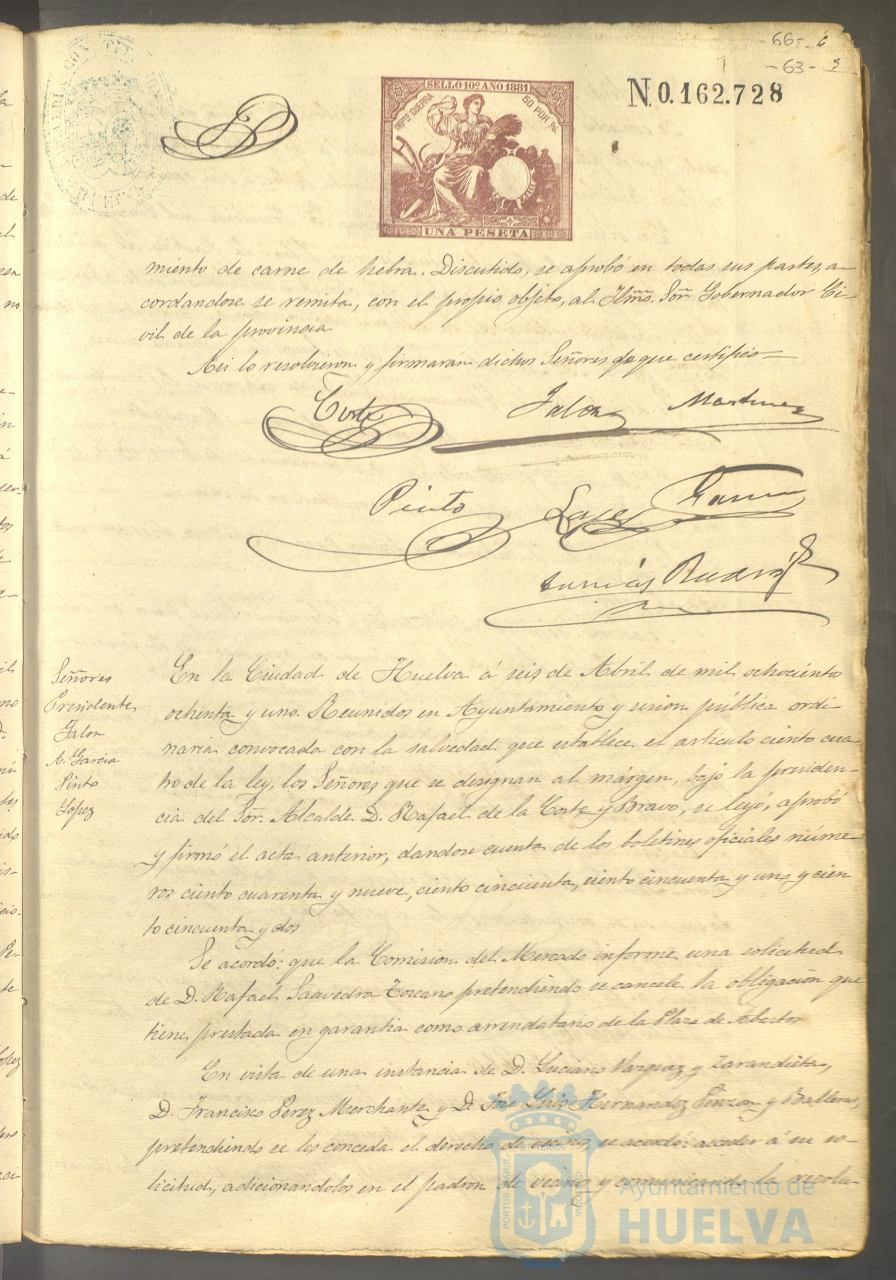 66
6
-63- 3
SELLO 10º AÑO 1881
IMPtO GUERRA
50 POR %
UNA PESETA
N 0.162.728
miento de carne de hebra. Discutido, se aprobó en todas sus partes, a-
cordandose se remita, con el propio objeto, al Iltmo. Sor. Gobernador Ci-
vil de la provincia
Asi lo resolvieron y firmaran dichos Señores de que certifico
Corte Jalon Martinez
Pinto Lopez Garcia
Señores
Presidente
Jalon
A. Garcia
Pinto
Lopez
En la Ciudad de Huelva á seis de Abril de mil ochociento
ochenta y uno. Reunidos en Ayuntamiento y sesion pública ordi-
naria convocada con la salvedad que establece el articulo ciento cua-
tro de la ley, los Señores que se designan al márgen, bajo la presiden-
cia del Sor. Alcalde D. Rafael de la Corte y Bravo, se leyó, aprobó
y firmó el acta anterior, dandose cuenta de los boletines oficiales núme-
ros ciento cuarenta y nueve, ciento cincuenta, ciento cincuenta y uno y cien
to cincuenta y dos
Se acordó: que la Comision del Mercado informe una solicitud
de D. Rafael Saavedra Toscano pretendiendo se cancele la obligación que
tiene prestada en garantia como arrendatario de la Plaza de Abastos
En vista de una instancia de D. Luciano Vazquez y Zarandieta,
D. Francisco Perez Merchante y D. José Luis Hernandez Pinzon y Balleras,
pretendiendo se les conceda el derecho de vecino, se acordó: acceder á su so-
licitud, adicionandolos en el padron de vecinos y comunicando la resolu-
PORTUS MARIS
CUSTODIA
Ayuntamiento de
HUELVA